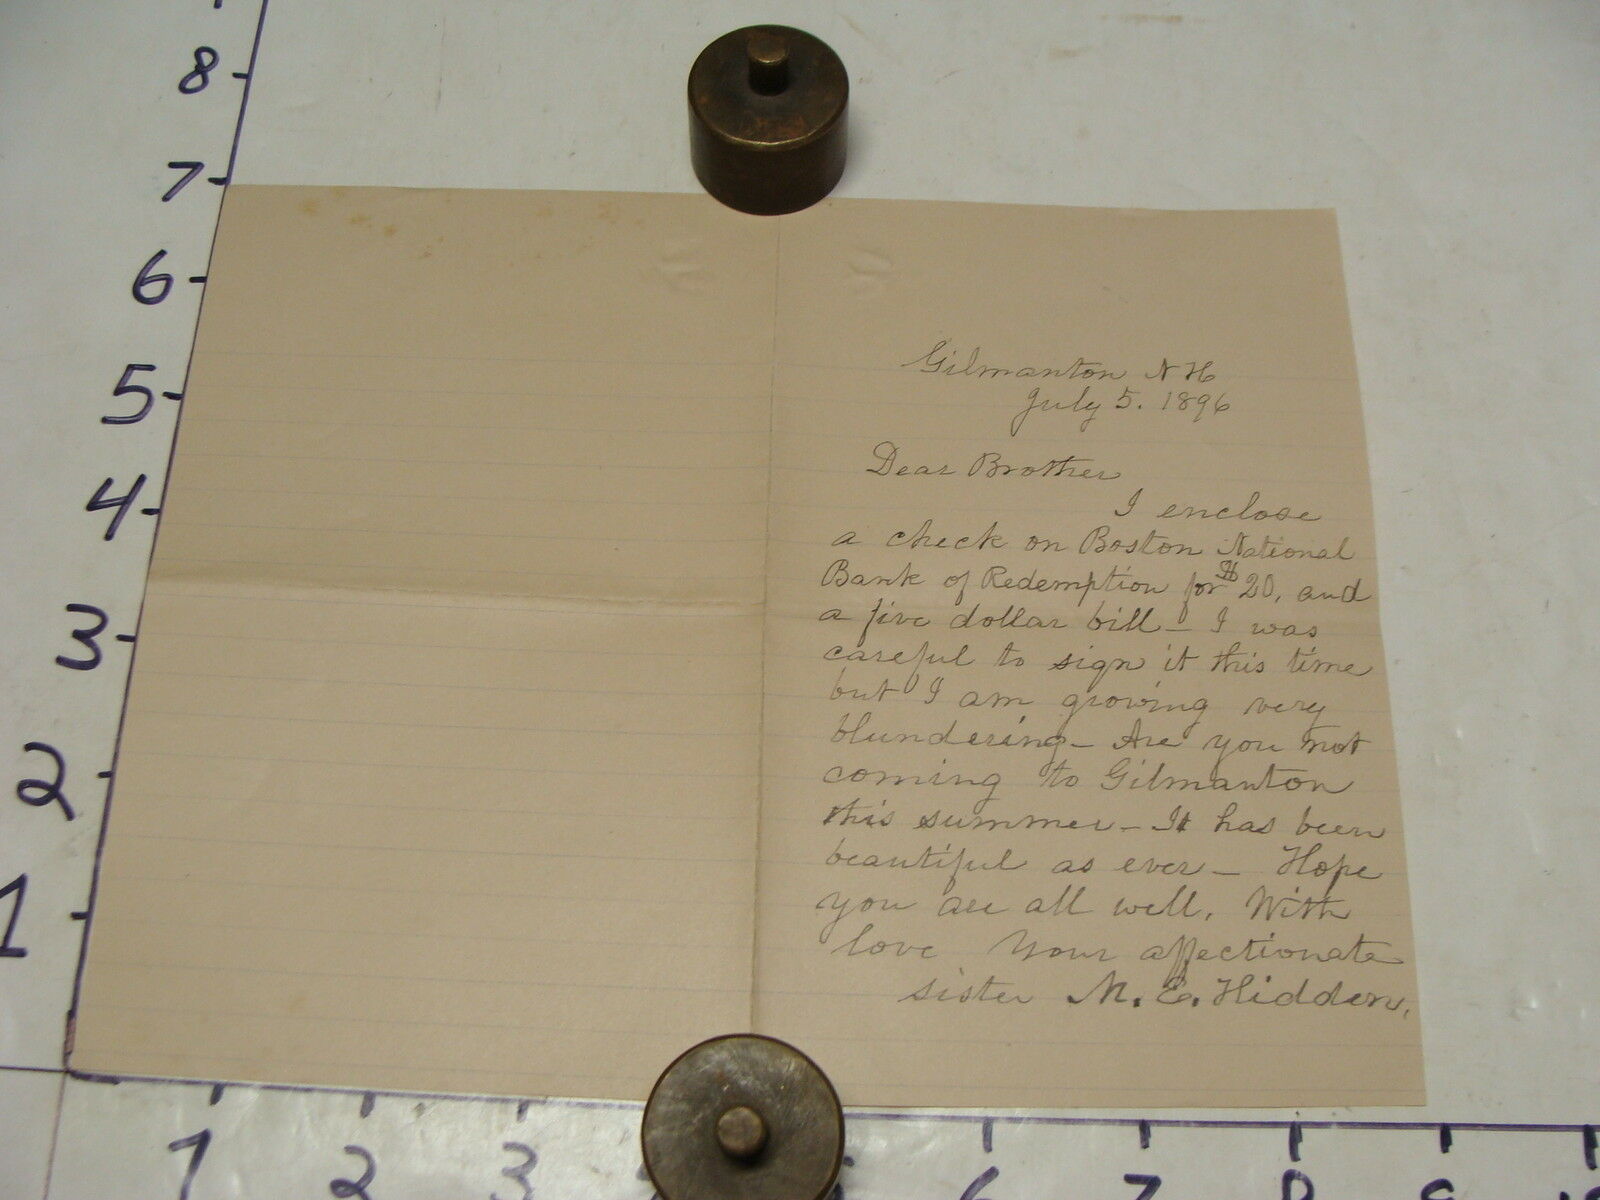 8
7
6
5
4
3
2
1
Gilmanton N H
July 5. 1896
Dear Brother
I enclose
a check on Boston National
Bank of Redemption for $20, and
a five dollar bill – I was
careful to sign it this time
but I am growing very
blundering – Are you not
coming to Gilmanton
this summer – It has been
beautiful as ever – Hope
you are all well. With
love Your affectionate
sister M. E. Hidden.
1 2 3 6 7 8 9 10